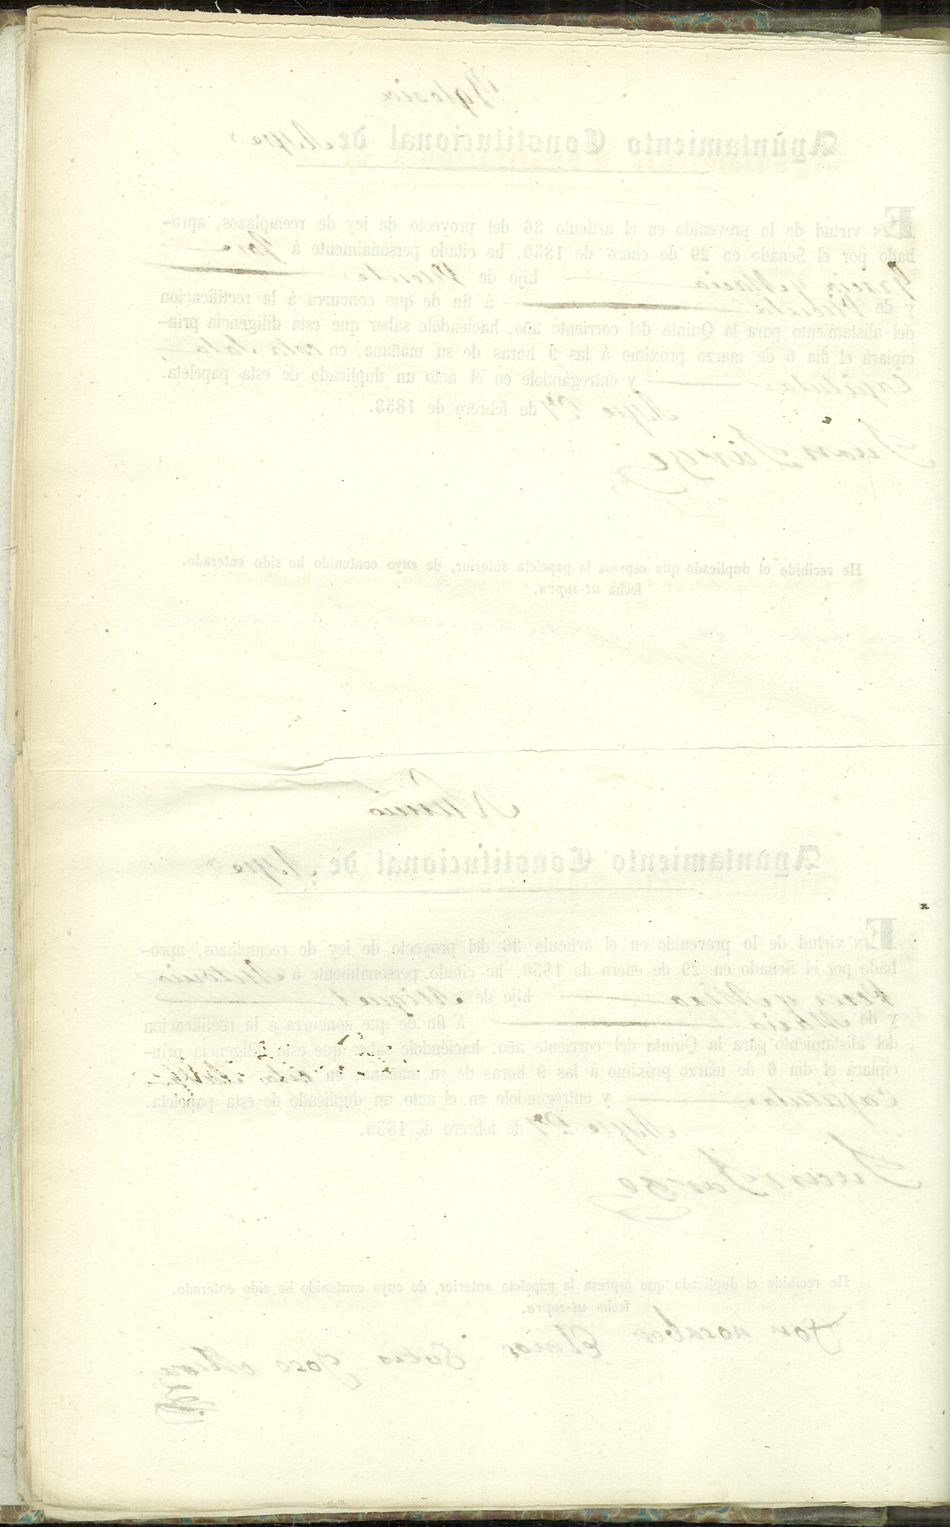 Yglesia
Ayuntamiento Constitucional de Aspe
EN virtud de lo prevenido en el artículo 36 del proyecto de ley de reemplazos, apro-
bado por el Senado en 29 de enero de 1850, he citado personalmente á
García y María hijo de Vicente
y de Vicenta á fin de que concurra á la rectificacion
del alistamiento para la Quinta del corriente año, haciéndole saber que esta diligencia prin-
cipiará el dia 6 de marzo próximo á las 9 horas de su mañana, en esta Sala
Capitular y entregándole en el acto un duplicado de esta papeleta.
Aspe 27 de febrero de 1853.
Juan
He recibido el duplicado que espresa la papeleta anterior, de cuyo contenido he sido enterado.
fecha ut-supra.
Ayuntamiento Constitucional de Aspe
EN virtud de lo prevenido en el artículo 36 del proyecto de ley de reemplazos, apro-
bado por el Senado en 29 de enero de 1850, he citado personalmente á Antonio
hijo de Miguel
y de María á fin de que concurra á la rectificacion
del alistamiento para la Quinta del corriente año, haciéndole saber que esta diligencia prin-
cipiará el dia 6 de marzo próximo á las 9 horas de su mañana, en esta
Capitular y entregándole en el acto un duplicado de esta papeleta.
Aspe 27 de febrero de 1853.
Juan
He recibido el duplicado que espresa la papeleta anterior, de cuyo contenido he sido enterado.
fecha ut-supra.
Por no saber Jose